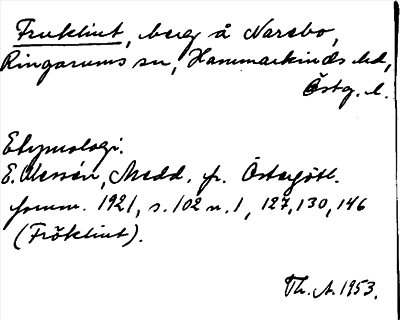 Fruklint, berg å Narebo,
Ringarums sn, Hammarkinds hd,
Östg. l.
Etymologi.
E. Wessén, Medd. fr. Östergötl.
fornm. 1921, s. 102 n. 1, 127, 130, 146
(Fröklint).
Th. A. 1953.